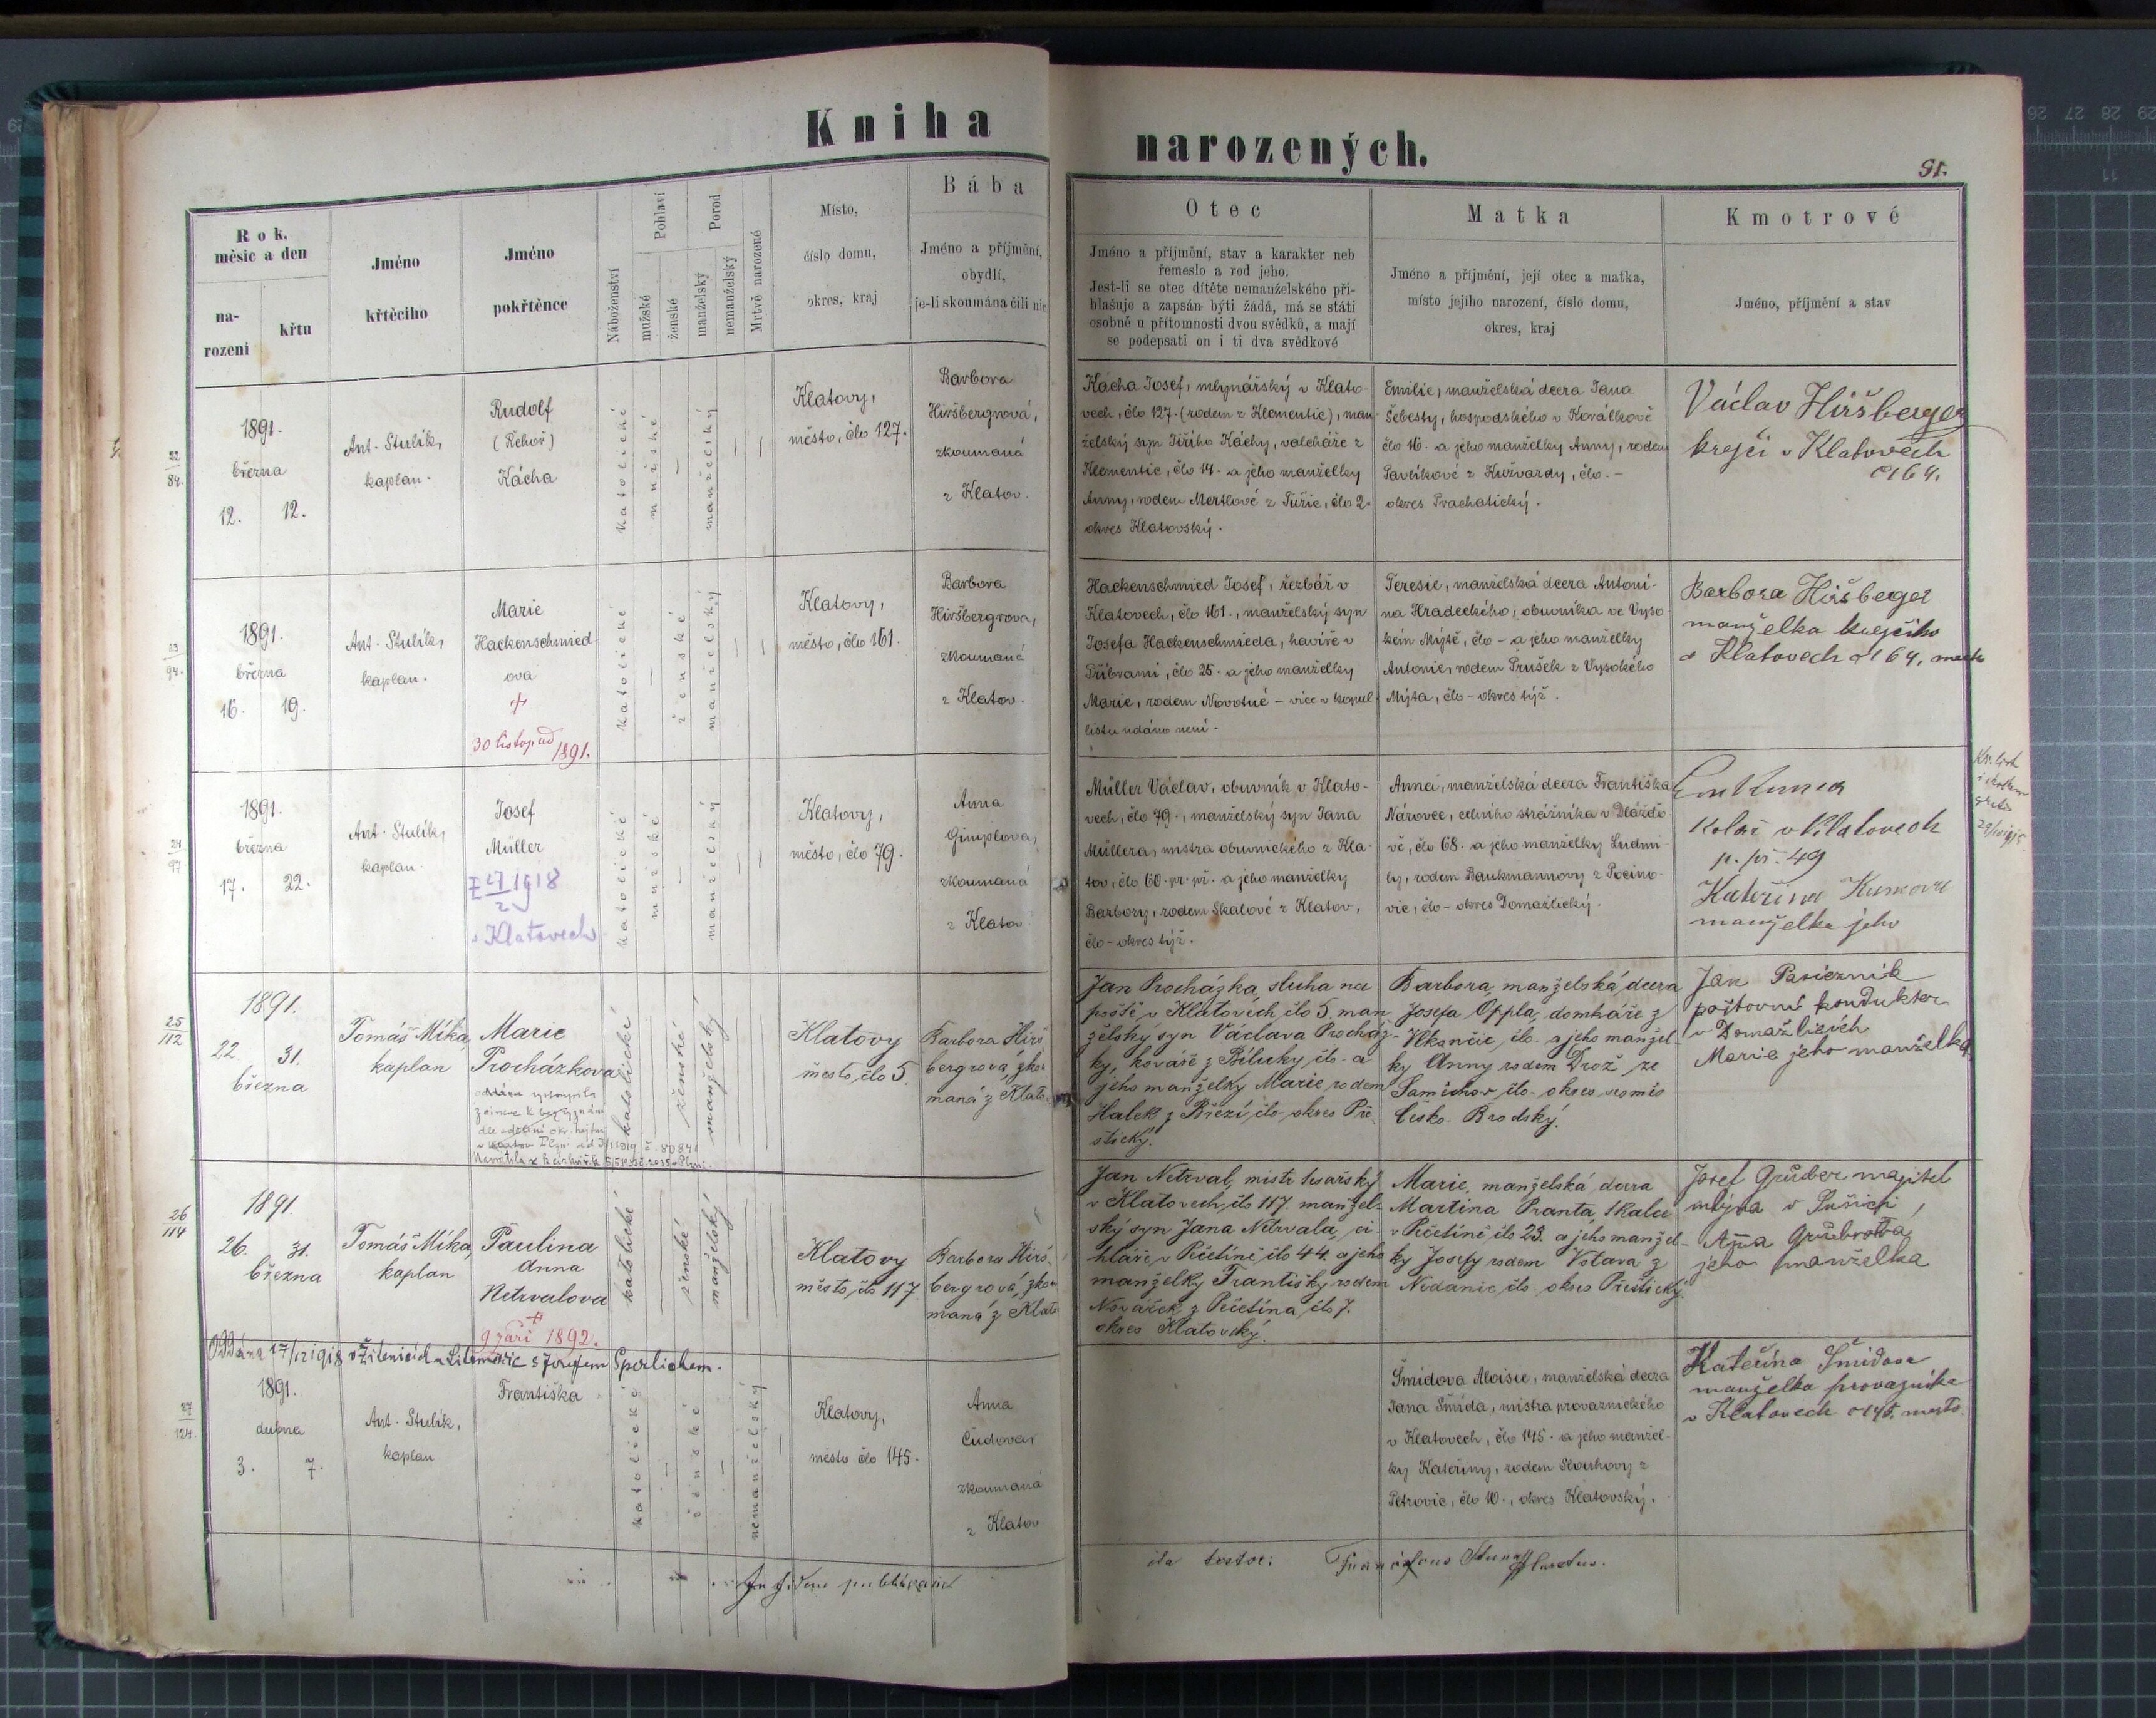 Kniha
narozených.
91.
Rok,
měsíc a den
na-
rozeni
křtu
Jméno
křtěcího
Jméno
pokřtěnce
Náboženství
Pohlaví
mužské
ženské
Porod
manželský
nemanželský
Mrtvě narozené
Místo,
číslo domu,
okres, kraj
Bába
Jméno a příjmění,
obydlí,
je-li skoumána čili nic
Otec
Jméno a příjmění, stav a karakter neb
řemeslo a rod jeho.
Jest-li se otec dítěte nemanželského při-
hlašuje a zapsán býti žádá, má se státi
osobně u přítomnosti dvou svědků, a mají
se podepsati on i ti dva svědkové
Matka
Jméno a příjmění, její otec a matka,
místo jejího narození, číslo domu,
okres, kraj
Kmotrové
Jméno, příjmění a stav
22
84.
1891.
března
12. 12.
Ant. Stulík,
kaplan.
Rudolf
(Řehoř)
Kácha
katolické
mužské
manželský
Klatovy,
město, člo 127.
Barbora
Hiršbergrová,
zkoumaná
z Klatov.
Kácha Josef, mlynářský v Klato-
vech, člo 127. (rodem z Klementic), man-
želský syn Jiřího Káchy, valcháře z
Klementic, člo 14. a jeho manželky
Anny, rodem Mertlové z Tužic, člo 2.
okres Klatovský.
Emilie, manželská dcera Jana
Šebesty, hospodského v Koválkově
člo 16. a jeho manželky Anny, rodem
Pavlíkové z Kužvardy, člo. –
okres Prachatický.
Václav Hiršberger
krejčí v Klatovech
č 64.
23
94.
1891.
března
16. 19.
Ant. Stulík,
kaplan.
Marie
Hackenschmied
ova
+
30 listopad 1891.
katolické
ženské
manželský
Klatovy,
město, člo 161.
Barbora
Hiršbergrova,
zkoumaná
z Klatov.
Hackenschmied Josef, řezbář v
Klatovech, člo 161., manželský syn
Josefa Hackenschmieda, havíře v
Příbrami, člo 25. a jeho manželky
Marie, rodem Novotné – více v kopul.
listu udáno není.
Teresie, manželská dcera Antoní-
na Hradeckého, obuvníka ve Vyso-
kém Mýtě, člo – a jeho manželky
Antonie, rodem Prušek z Vysokého
Mýta, člo – okres týž.
Barbora Hiršberger
manželka krejčího
v Klatovech č 64, město
24
97
1891.
března
17. 22.
Ant. Stulík,
kaplan.
Josef
Müller
27/2 1918
v Klatovech
katolické
mužské
manželský
Klatovy,
město, člo 79.
Anna
Gimplova,
zkoumaná
z Klatov
Müller Václav, obuvník v Klato-
vech, člo 79., manželský syn Jana
Müllera, mistra obuvnického z Kla-
tov, člo 60. pr. př. a jeho manželky
Barbory, rodem Skalové z Klatov,
člo – okres týž.
Anna, manželská dcera Františka
Nárovce, celního strážníka v Dláždě-
vě, člo 68. a jeho manželky Ludmi-
ly, rodem Baukmannovy z Pocino-
vic, člo – okres Domažlický.
Kolář v Klatovech
p. př. 49
Kateřina
manželka jeho
25
112
1891.
22. 31.
března
Tomáš Míka,
kaplan
Marie
Procházkova
katolické
ženské
manželský
Klatovy
město, člo 5.
Barbora Hirš-
bergrová, zkou-
maná z Klatov
Jan Procházka, sluha na
poště v Klatovech člo 5. man-
želský syn Václava Procház-
ky, kováře z Bělucky člo - a
jeho manželky Marie rodem
Halek z Březí, člo - okres Pře-
štický.
Barbora, manželská dcera
Josefa Oppla, domkáře z
Vlkančic, člo - a jeho manžel-
ky Anny rodem Drož ze
Samíchov člo - okres vesměs
Česko-Brodský.
Jan
poštovní konduktor
v Domažlicích
Marie jeho manželka
26
114
1891.
26. 31.
března
Tomáš Míka,
kaplan
Paulina
Anna
Netrvalova
+
9 září 1892.
katolické
ženské
manželský
Klatovy
město, člo 117
Barbora Hirš-
bergrová, zkou-
maná z Klatov
Jan Netrval, mistr tesařský
v Klatovech, člo 117. manžel-
ský syn Jana Netrvala, ci-
hláře v Pečetíně člo 44 a jeho
manželky Františky rodem
Nováček z Pečetína, člo 7.
okres Klatovský.
Marie, manželská dcera
Martina Pranta, skalce
v Pečetíně člo 23. a jeho manžel-
ky Josefy rodem Vstava z
Nedanic člo okres Přeštický.
Josef Grüber majitel
mlýna v Sušici,
Anna
jeho manželka
27
124.
Oddána 17/12 1918 v Žitenicích u Litoměřic s Josefem Sperlichem.
1891.
dubna
3. 7.
Ant. Stulík,
kaplan
Františka
katolické
ženské
nemanželský
Klatovy,
město člo 145.
Anna
Čudova,
zkoumaná
z Klatov
Šmídova Aloisie, manželská dcera
Jana Šmída, mistra provaznického
v Klatovech, člo 145. a jeho manžel-
ky Kateřiny, rodem Slouhovy z
Petrovic, člo 10., okres Klatovský.
Kateřina Šmídova
manželka provazníka
v Klatovech č 145, město.
In fidem publicam
ita testor: